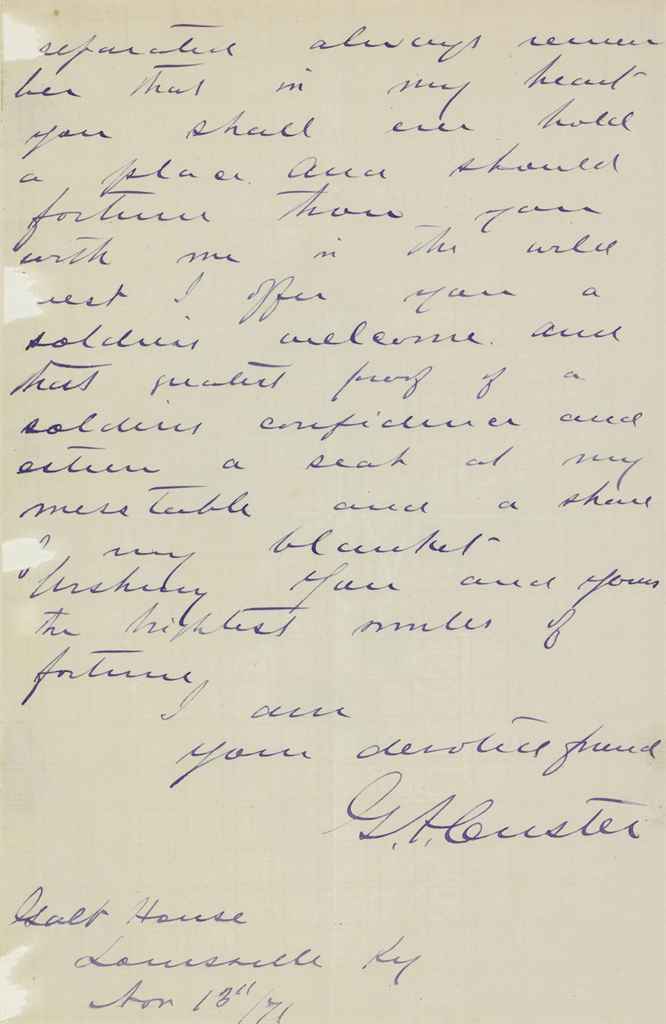 separated always remem
ber that in my heart
you shall ever hold
a place. And should
fortune throw you
with me in the wild
west I offer you a
soldiers welcome. and
that greatest proof of a
soldiers confidence and
esteem a seat at my
mess table and a share
of my blanket
Wishing you and yours
the brightest smiles of
fortune,
I am
your devoted friend
G. A. Custer
Galt House
Louisville Ky
Nov 13"/71